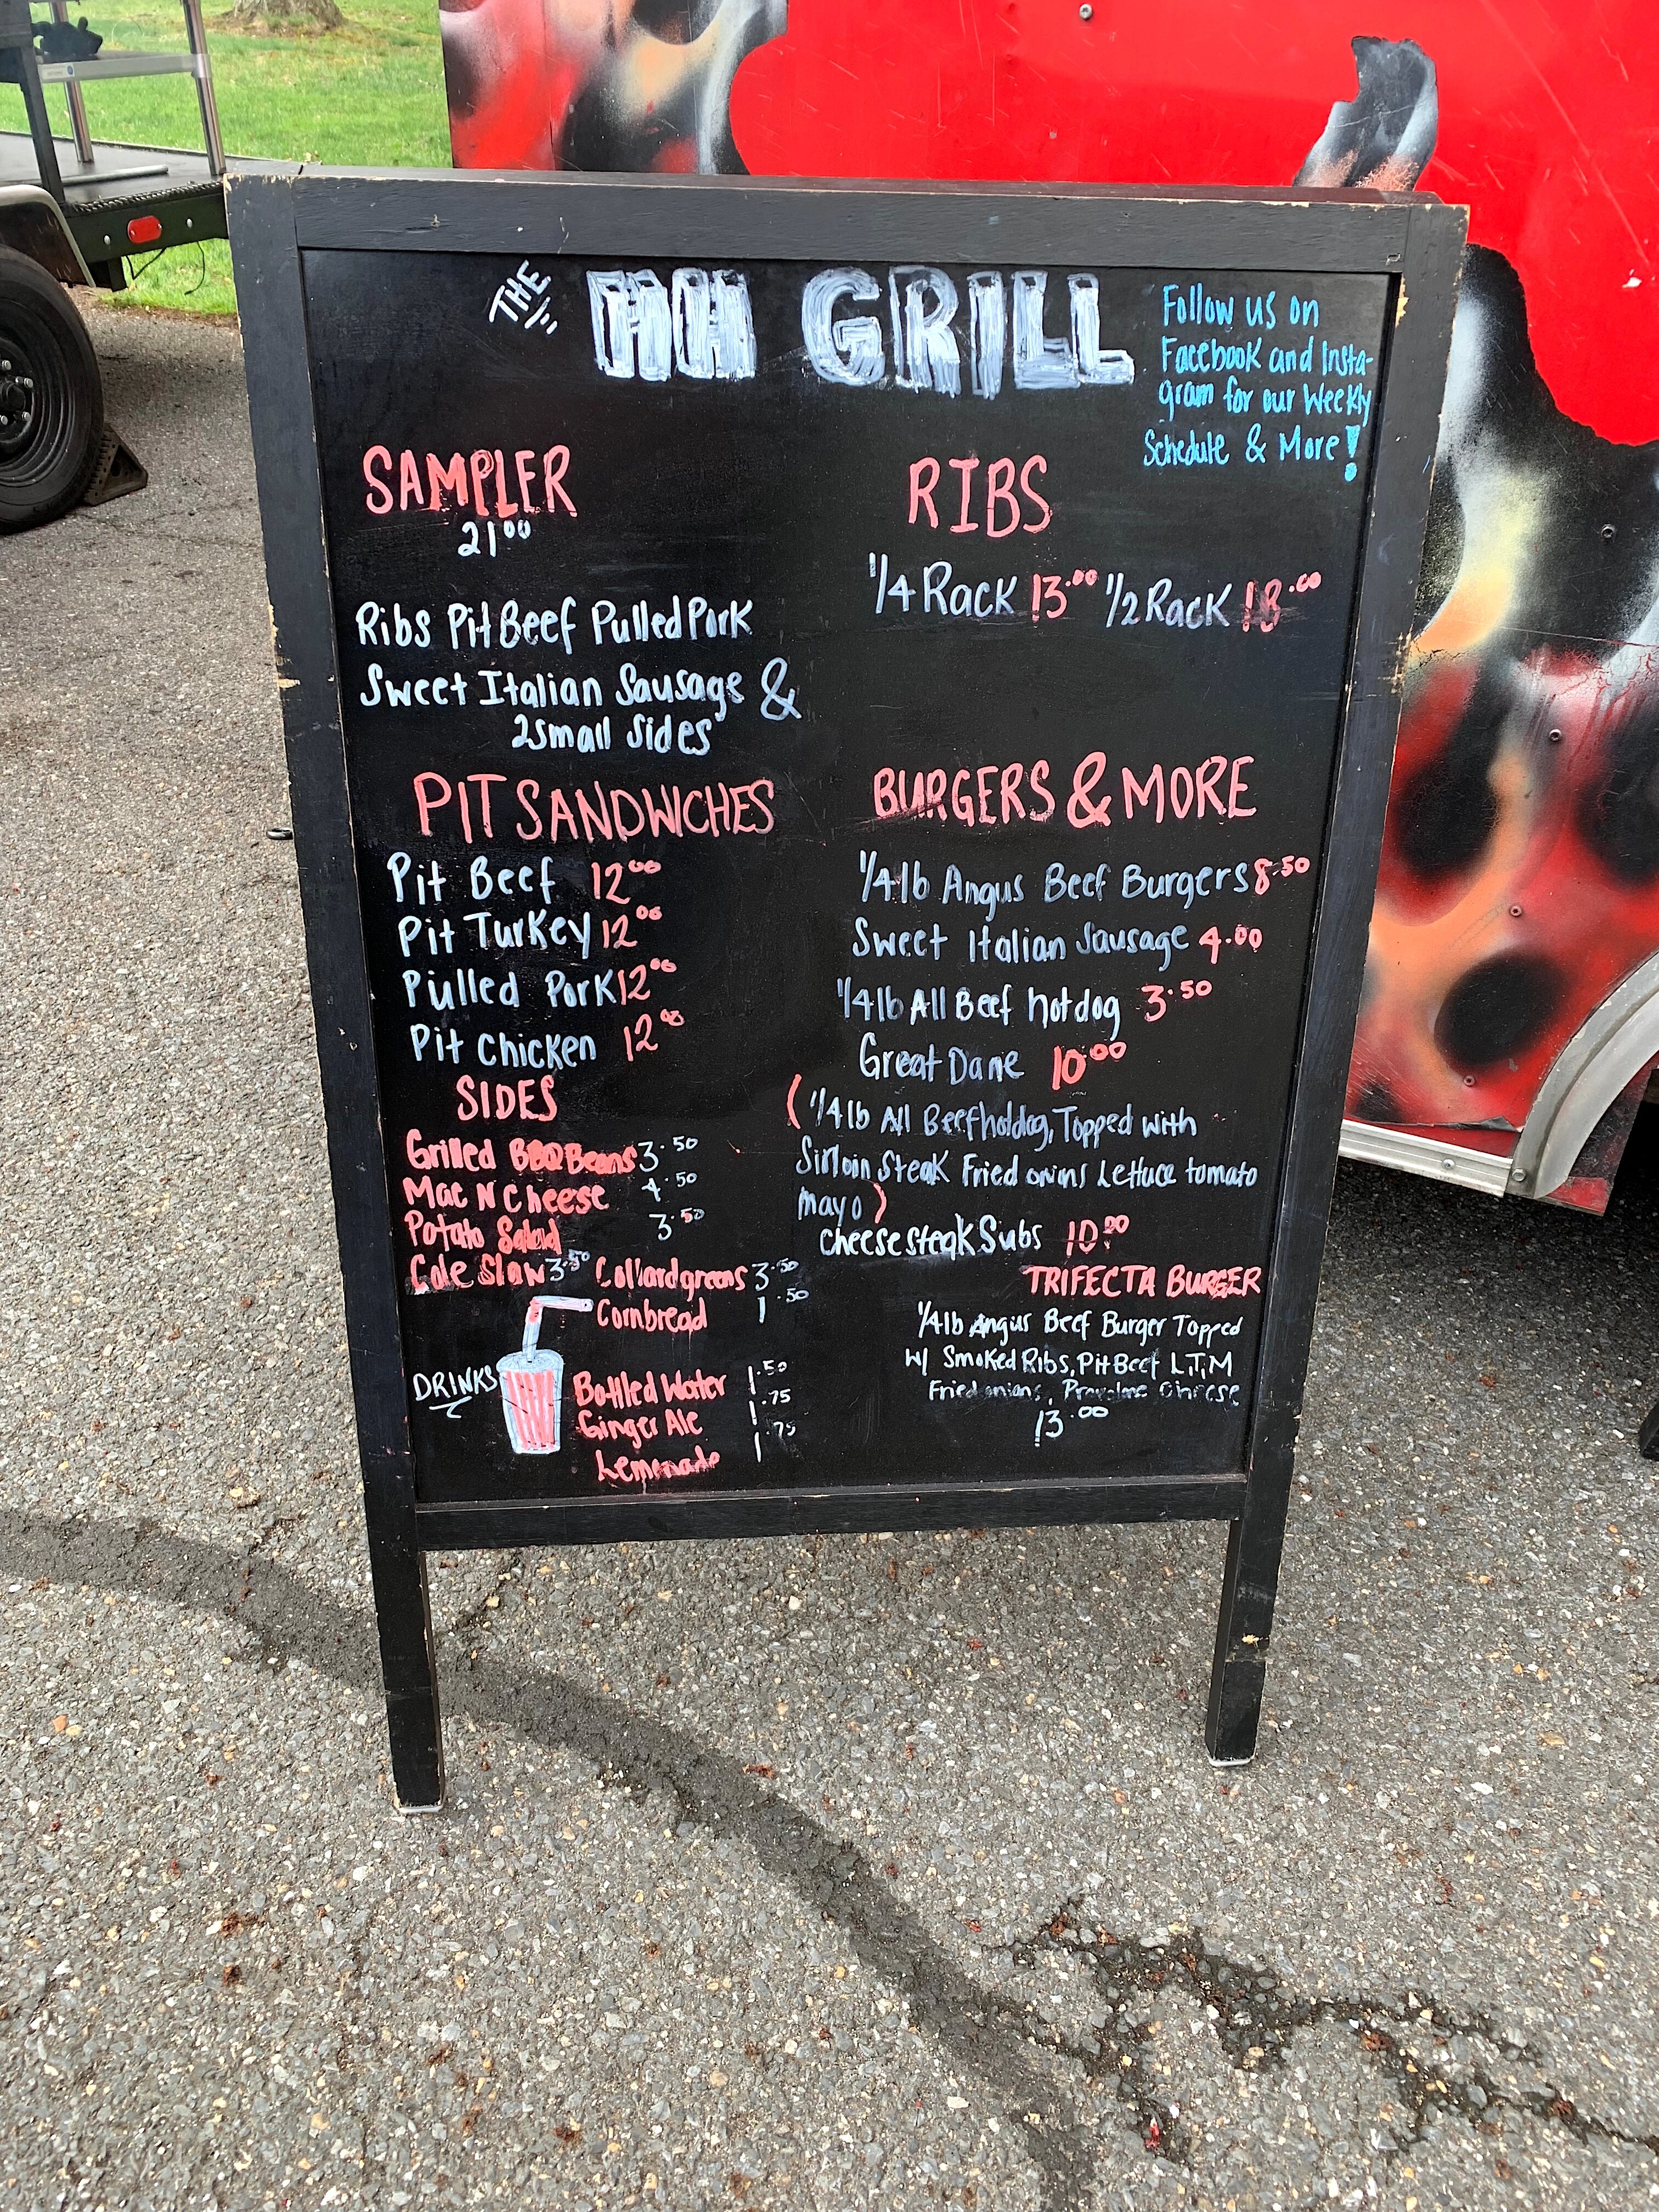 THE HH GRILL
Follow us on
Facebook and Insta-
gram for our Weekly
Schedule & More!
SAMPLER
21.00
Ribs Pit Beef Pulled Pork
Sweet Italian Sausage &
2 small sides
RIBS
1/4 Rack 13.00 1/2 Rack 18.00
PIT SANDWICHES
Pit Beef 12.00
Pit Turkey 12.00
Pulled Pork 12.00
Pit Chicken 12.00
SIDES
Grilled BBQ Beans 3.50
Mac N Cheese 4.50
Potato Salad 3.50
Cole Slaw 3.50 Collard greens 3.50
Cornbread 1.50
DRINKS
Bottled Water 1.50
Ginger Ale 1.75
Lemonade 1.75
BURGERS & MORE
1/4 lb Angus Beef Burgers 8.50
Sweet Italian Sausage 4.00
1/4 lb All Beef hotdog 3.50
Great Dane 10.00
(1/4 lb All Beef hotdog, Topped with
Sirloin Steak Fried onins Lettuce tomato
mayo)
Cheesesteak Subs 10.00
TRIFECTA BURGER
1/4 lb Angus Beef Burger Topped
W/ Smoked Ribs, Pit Beef L,T,M
Fried onions, Provolone Cheese
13.00